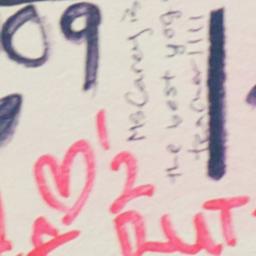 09
Ms Carey is
the best yoga
teacher!!!!
2
RUT